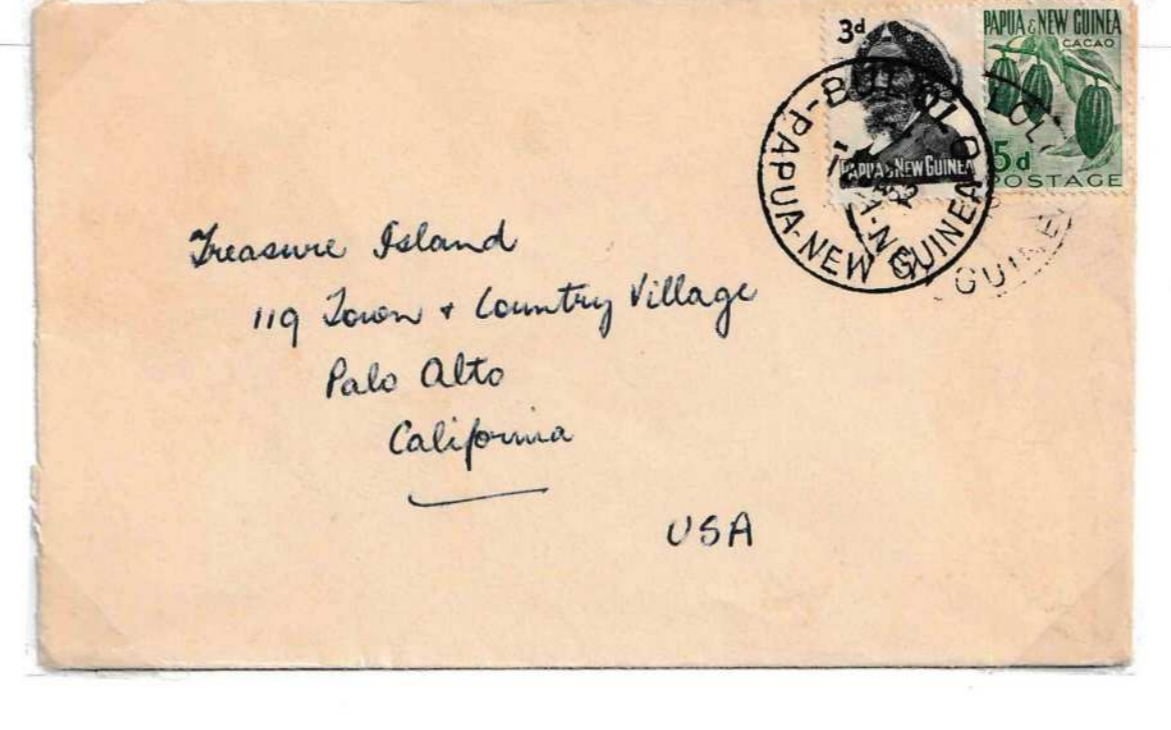 3d
PAPUA & NEW GUINEA
PAPUA & NEW GUINEA
CACAO
5d
POSTAGE
BULOLO
-PAPUA-NEW GUINEA
LOL
GUINEA
Treasure Island
119 Town + Country Village
Palo Alto
California
USA